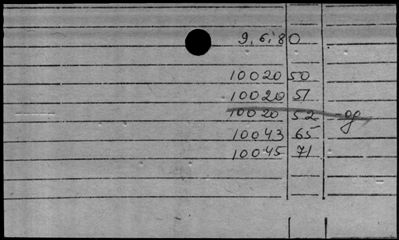 9.6.80
10020 50
10020 51
10020 52
10043 65
10045 71